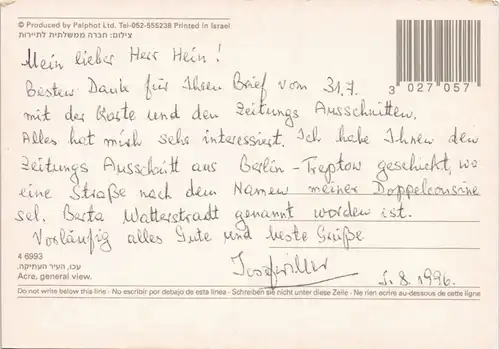 © Produced by Palphot Ltd. Tel-052-555238 Printed in Israel
צילום: חברה ממשלתית לתיירות
3 027057
Mein lieber Herr Hein!
Besten Dank für Ihren Brief vom 31.7.
mit der Karte und den Zeitungs Ausschnitten.
Alles hat mich sehr interessiert. Ich habe Ihnen den
Zeitungs Ausschnitt aus Berlin-Treptow geschickt, wo
eine Straße nach dem Namen meiner Doppelcousine
sel. Berta Watterstradt genannt worden ist.
Vorläufig alles Gute und beste Grüße
5.8.1996.
4 6993
עכו, העיר העתיקה.
Acre, general view.
Do not write below this line - No escribir por debajo de esta linea - Schreiben sie nicht unter diese Zeile - Ne rien ecrire au-dessous de cette ligne